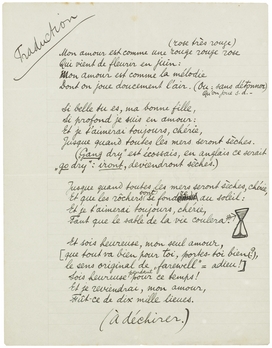 Traduction
(rose très rouge)
Mon amour est comme une rouge rouge rose
Qui vient de fleurer en juin:
Mon amour est comme la mélodie
Dont on joue doucement l'air. (Ou: sans détonner)
Si belle tu es, ma bonne fille,
Si profond je suis en amour:
Et je t'aimerai toujours, chérie,
Jusque quand toutes les mers seront sèches.
(Gang dry" est écossais, en anglais ce serait
"go dry": iront, deviendront sèches.)
Jusque quand toutes les mers seront sèches, chérie,
Et que les rochers se fond au soleil:
Et je t'aimerai toujours, chérie,
Tant que le sable de la vie coulera.
Et sois heureuse, mon seul amour,
[que tout va bien pour toi, portes-toi bien?),
le sens original de "farewell" = adieu!]
Sois heureuse pendant ce temps!
Et je reviendrai, mon amour,
Fût-ce de dix mille lieues.
(À déchirer.)